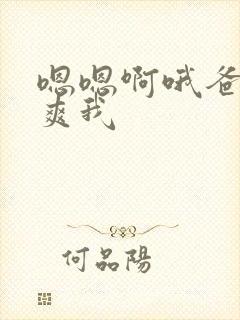 嗯嗯啊哦爸
爽我
何品陽